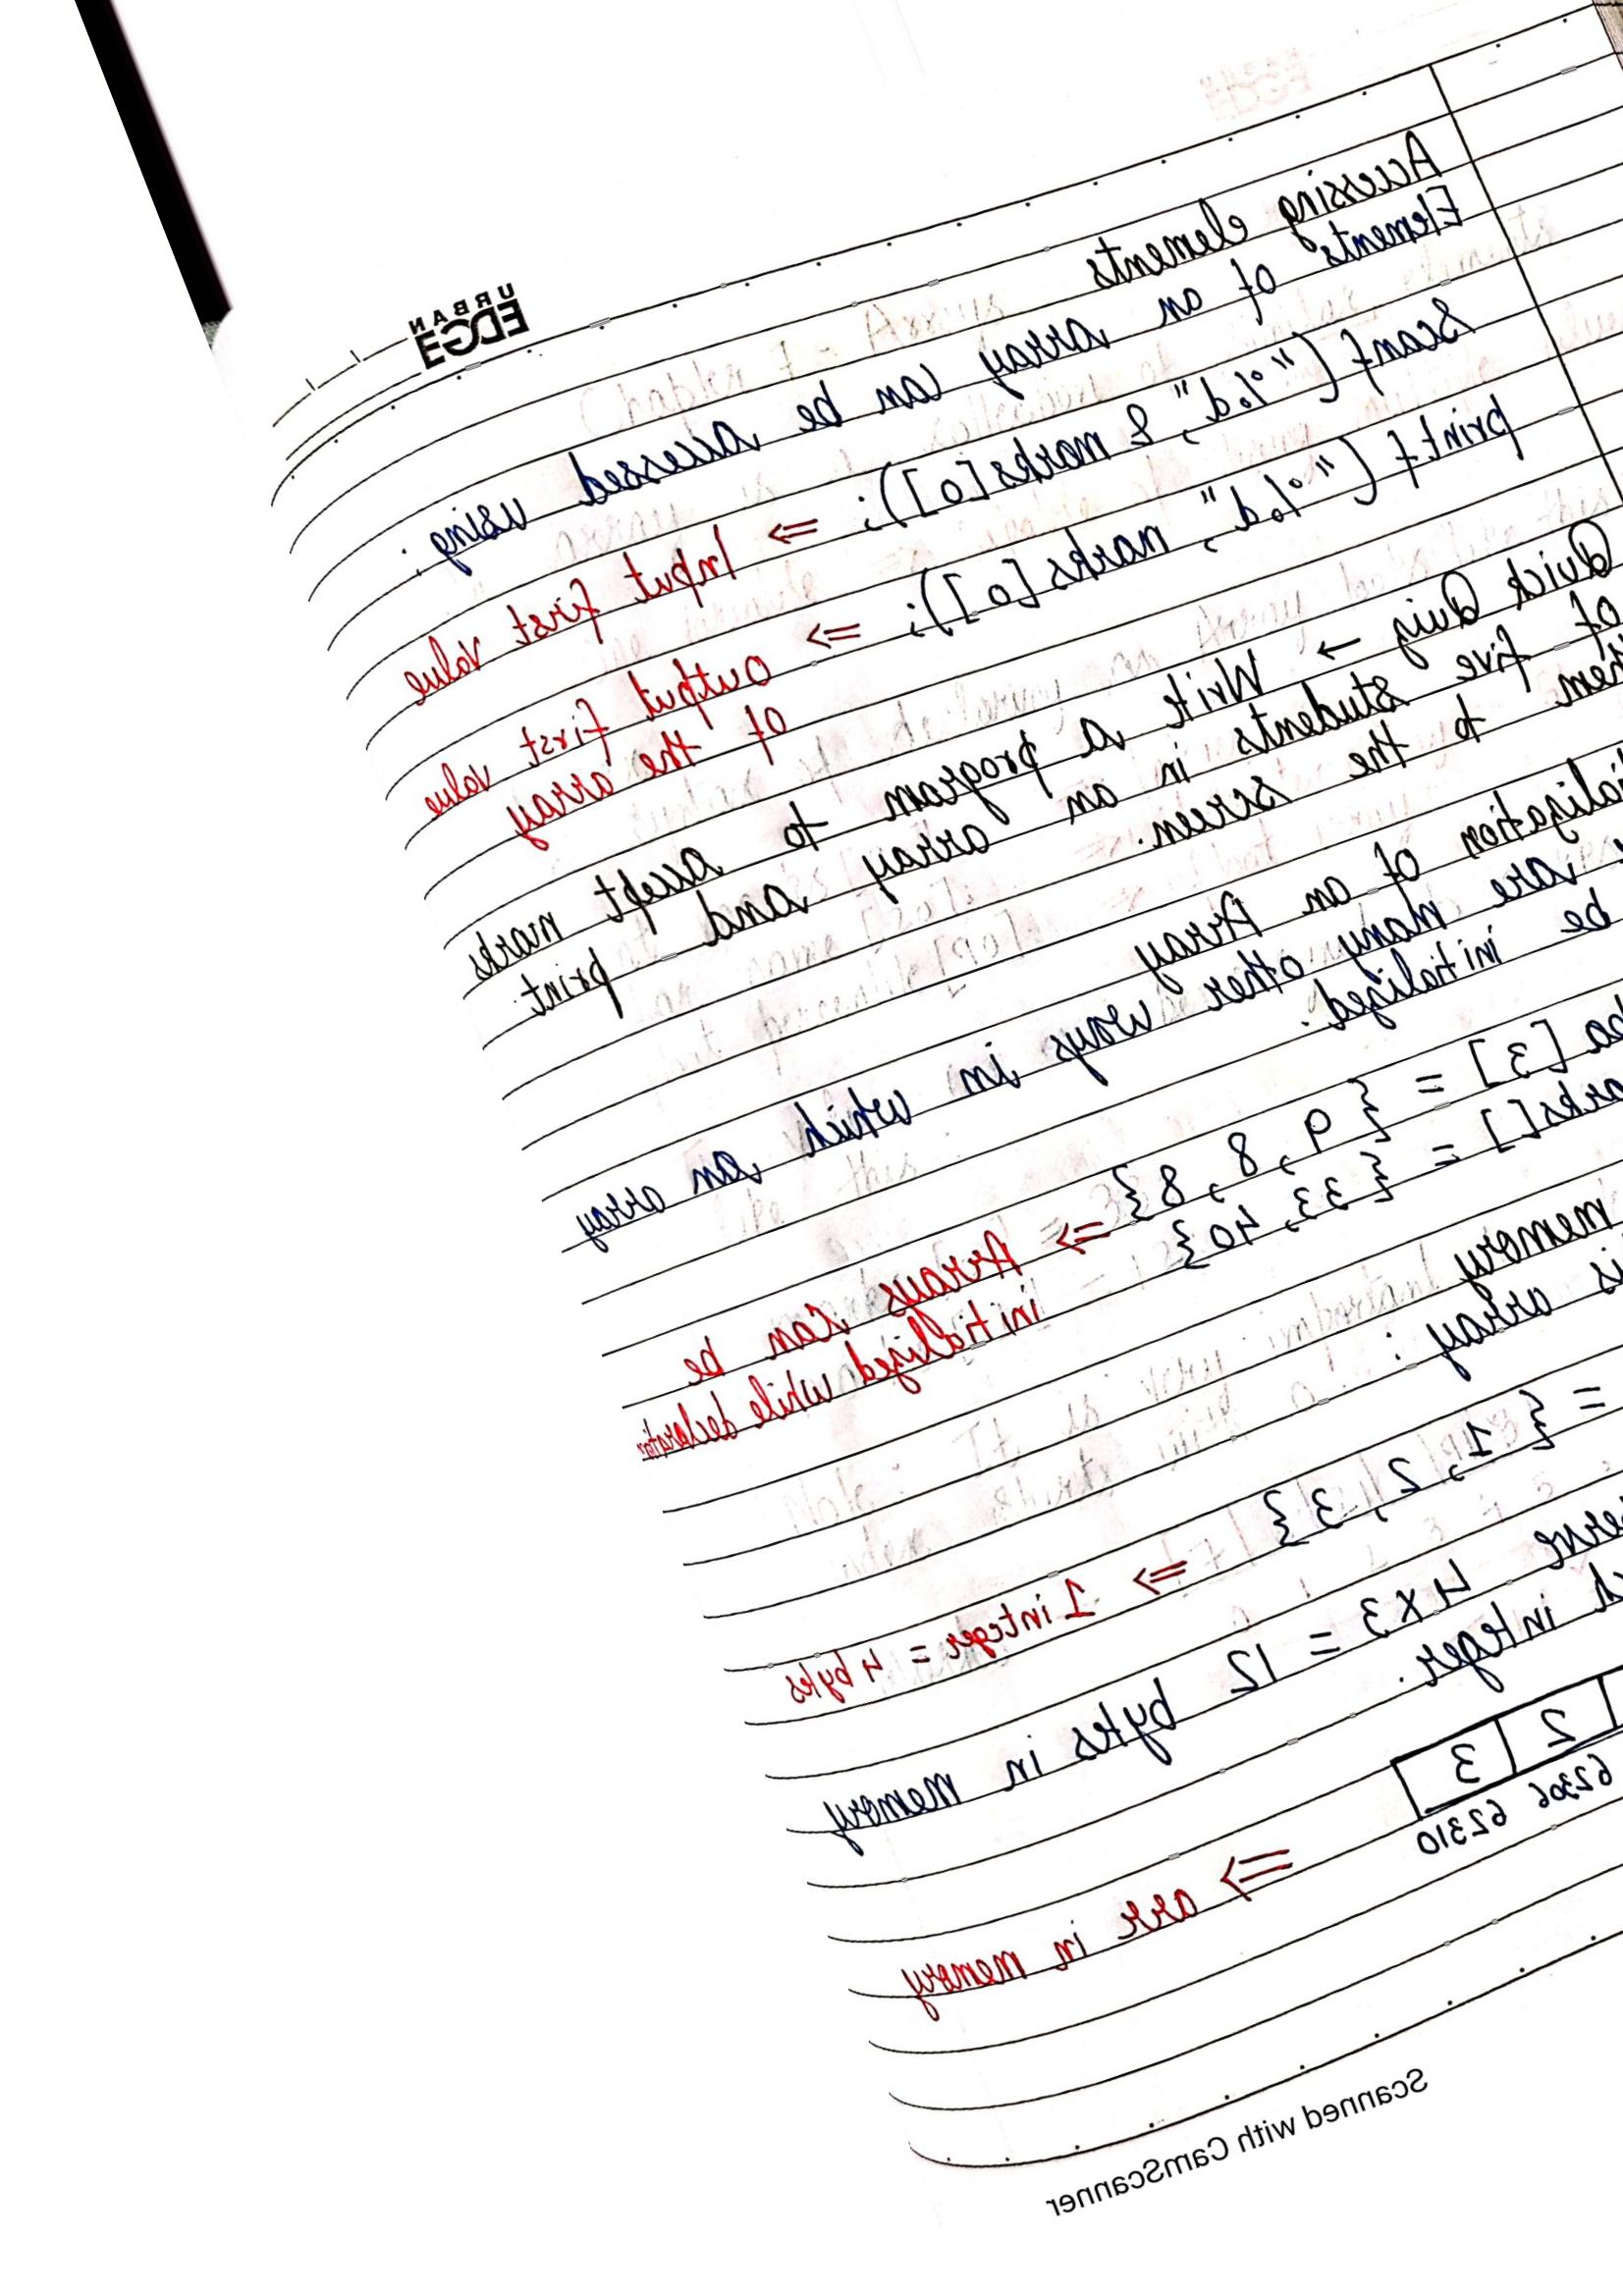 URBAN
EDGE
Accessing elements
Elements of an array can be accessed using :
scanf ("%d", & marks[0]); => Input first value
printf ("%d", marks[0]); => output first value
of the array
Quick Quiz → Write a program to accept marks
of five students in an array and print
them to the screen.
of an Array
are many other ways in which an array
be initialized.
[3] = { 9, 8, 8} => Arrays can be
[] = {33, 40} initialized while declaration
memory
array :
= { 1, 2, 3} => 1 integer = 4 bytes
4x3 = 12 bytes in memory
integer.
2 3
62306 62310
=> arr in memory
Scanned with CamScanner